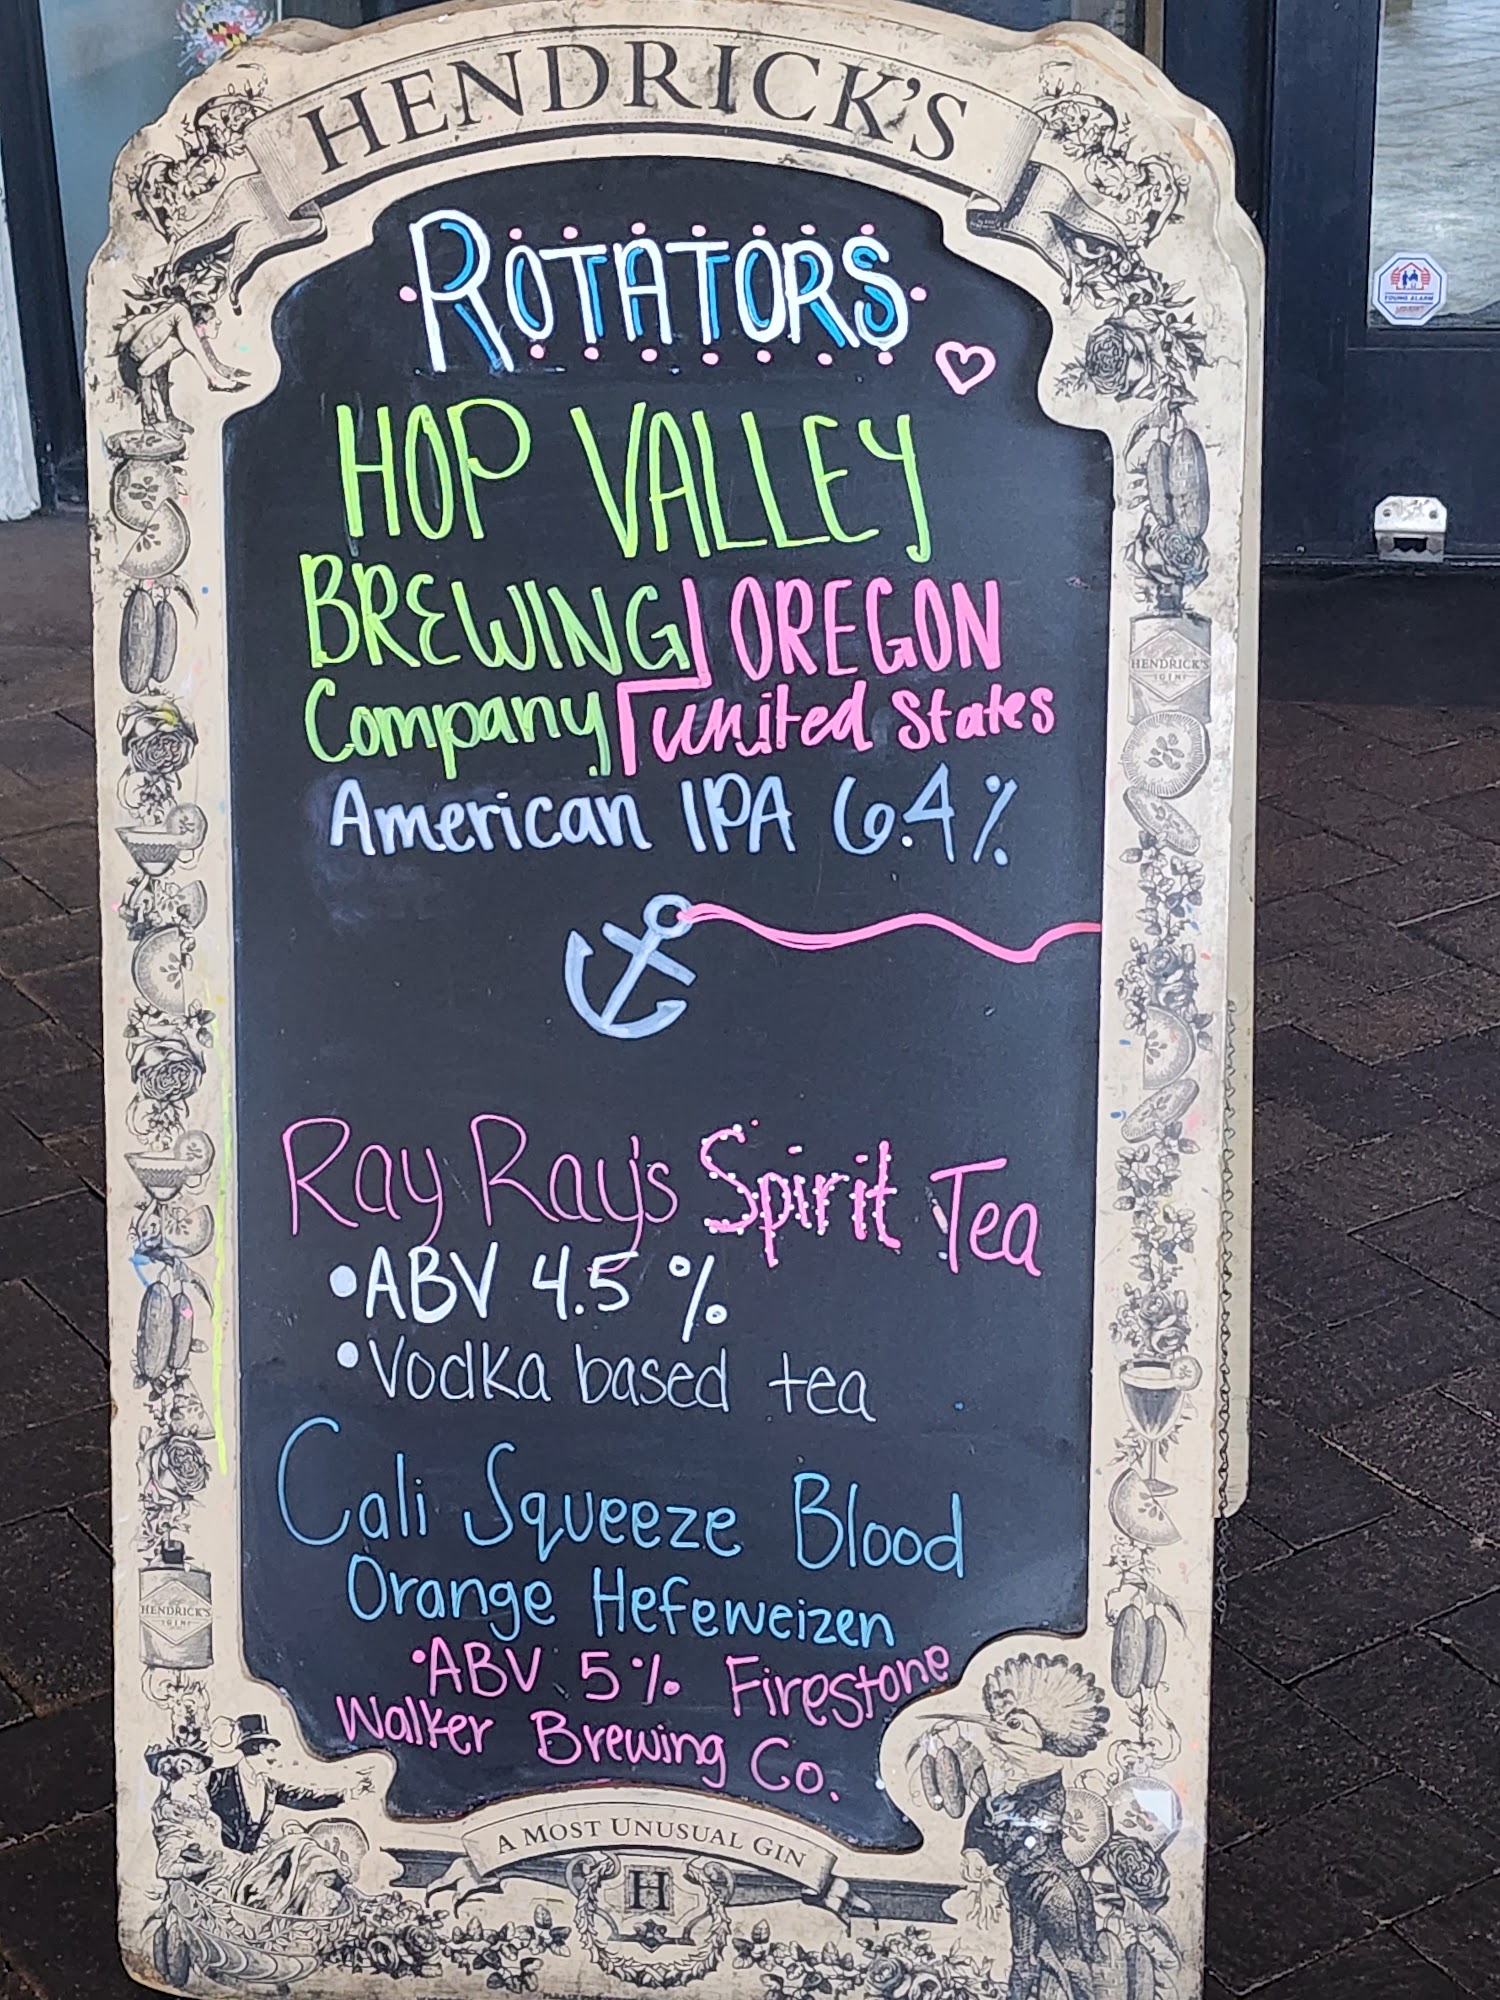 HENDRICK'S
ROTATORS
HOP VALLEY
BREWING OREGON
Company United States
American IPA 6.4%
Ray Ray's Spirit Tea
•ABV 4.5%
•Vodka based tea
Cali Squeeze Blood
Orange Hefeweizen
•ABV 5% Firestone
Walker Brewing Co.
A MOST UNUSUAL GIN
H
HENDRICK'S
GIN
HENDRICK'S
GIN
YOUNG ALARM